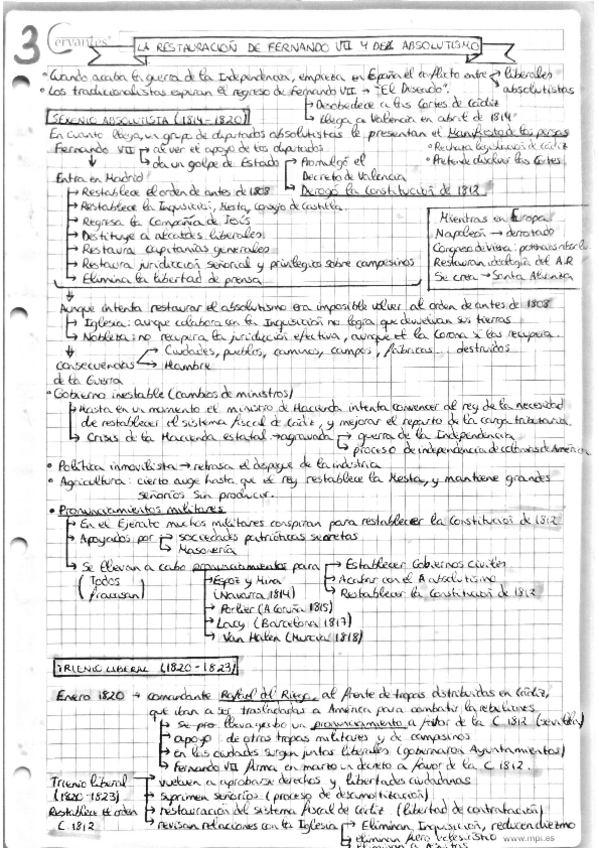 3 Cervantes
LA RESTAURACIÓN DE FERNANDO VII Y DEL ABSOLUTISMO
• Cuando acaba la guerra de la Independencia, empieza en España el conflicto entre → liberales
→ absolutistas
• Los tradicionalistas esperan el regreso de Fernando VII → "El Deseado".
→ Desobedece a las Cortes de Cádiz
→ Llega a Valencia en abril de 1814
SEXENIO ABSOLUTISTA (1814-1820)
En cuanto llega, un grupo de diputados absolutistas le presentan el Manifiesto de los persas
Fernando VII → al ver el apoyo de los diputados
• Rechaza legislación de Cádiz
→ da un golpe de Estado → Promulgó el
• Pretende disolver las Cortes
Decreto de Valencia
Entra en Madrid:
→ Derogó la Constitución de 1812
→ Restablece el orden de antes de 1808
→ Restablece la Inquisición, Mesta, consejo de Castilla.
→ Regresa la Compañía de Jesús
→ Destituye a alcaldes liberales
→ Restaura capitanías generales
→ Restaura jurisdicción señorial y privilegios sobre campesinos
→ Elimina la libertad de prensa
Mientras en Europa
Napoleón → derrotado
Congreso de Viena:
Restauran ideología del A.R
Se crea → Santa Alianza
Aunque intenta restaurar el absolutismo era imposible volver al orden de antes de 1808
→ Iglesia: aunque colabora con la Inquisición no logra que devuelvan sus tierras
→ Nobleza: no recupera la jurisdicción efectiva, aunque el la Corona si las recupera.
consecuencias → Ciudades, pueblos, caminos, campos, fábricas... destruidos
de la Guerra → Hambre
• Gobierno inestable (cambios de ministros)
→ Hasta en un momento el ministro de Hacienda intenta convencer al rey de la necesidad
de restablecer el sistema fiscal de Cádiz, y mejorar el reparto de la carga tributaria.
→ Crisis de la Hacienda estatal → agravada → guerra de la Independencia
→ proceso de independencia de colonias de América
• Política inmovilista → retrasa el despegue de la industria
• Agricultura: cierto auge hasta que el rey restablece la Mesta, y mantiene grandes
señoríos sin producir.
• Pronunciamientos militares
→ En el Ejército muchos militares conspiran para restablecer la Constitución de 1812
→ Apoyados por → sociedades patrióticas secretas
→ Masonería
→ Se llevan a cabo pronunciamientos para → Establecer Gobiernos civiles
(Todos fracasan)
→ Acabar con el Absolutismo
→ Restablecer la Constitución de 1812
→ Espoz y Mina
(Navarra 1814)
→ Porlier (A Coruña 1815)
→ Lacy (Barcelona 1817)
→ Van Halen (Murcia 1818)
TRIENIO LIBERAL (1820-1823)
Enero 1820 → comandante Rafael del Riego, al frente de tropas distribuidas en Cádiz,
que iban a ser trasladadas a América para combatir la rebeliones
→ se pro lleva a cabo un pronunciamiento a favor de la C. 1812 (Sevilla)
→ apoyo de otras tropas militares y de campesinos
→ en las ciudades surgen juntas liberales (gobernaron Ayuntamientos)
→ Fernando VII firma en marzo un decreto a favor de la C. 1812.
Trienio liberal → vuelven a aprobarse derechos y libertades ciudadanas
(1820-1823) → suprimen señoríos (proceso de desamortización)
Restablece el orden → restauración del sistema fiscal de Cádiz (libertad de contratación)
C. 1812 → revisan relaciones con la Iglesia → Eliminan Inquisición, reducen diezmo
→ eliminan
www.mpi.es